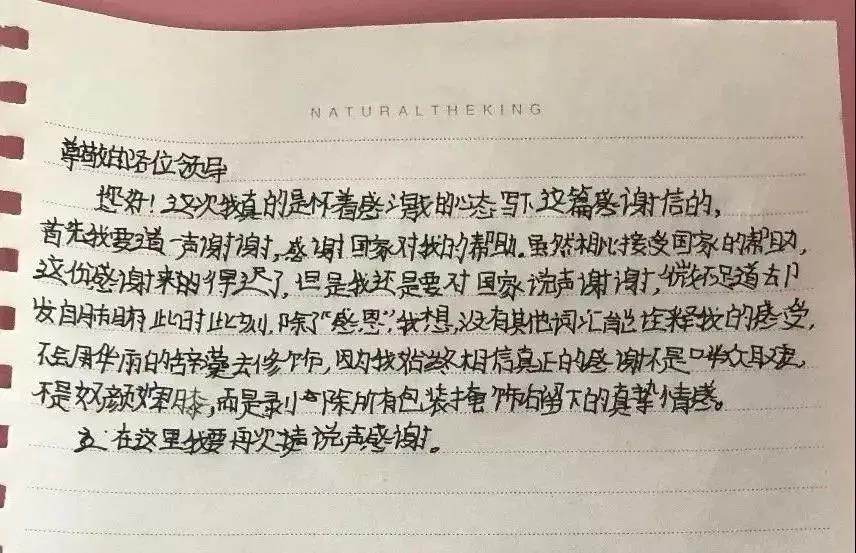 NATURALTHEKING
尊敬的各位领导
您好！这次我真的是怀着感激的心态写下这篇感谢信的，
首先我要道一声谢谢，感谢国家对我的帮助。虽然相比接受国家的帮助，
这份感谢来的得迟了，但是我还是要对国家说声谢谢，微不足道却
发自肺腑，此时此刻，除了“感恩”，我想，没有其他词汇能诠释我的感受，
不会用华丽的辞藻去修饰，因为我始终相信真正的感谢不是哗众取宠，
不是奴颜婢膝，而是剥除所有包装掩饰后留下的真挚情感。
在这里我要再次说声感谢。